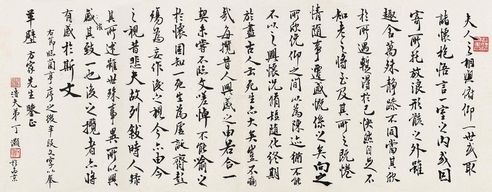 夫人之相與俯仰一世或取
諸懷抱悟言一室之內或因
寄所託放浪形骸之外雖
趣舍萬殊靜躁不同當其欣
於所遇暫得於己快然自足不
知老之將至及其所之既惓
情隨事遷感慨係之矣向之
所欣俛仰之間以為陳迹猶不
能不以之興懷況脩短隨化終期
於盡古人云死生亦大矣豈不痛
哉每攬昔人興感之由若合一
契未嘗不臨文嗟悼不能喻之
於懷固知一死生為虛誕齊彭
殤為妄作後之視今亦由今
之視昔悲夫故列敘時人錄
其所述雖世殊事異所以興
懷其致一也後之攬者亦將
有感於斯文
右節臨蘭亭序之後半段文字以奉
方家先生鑒正
弟丁灝